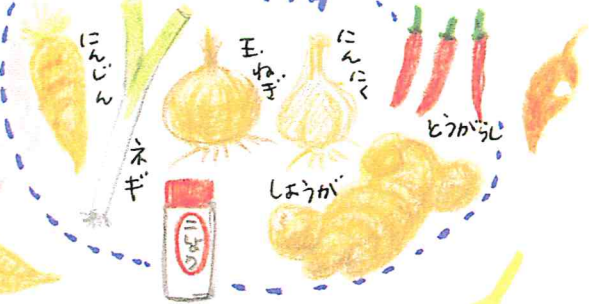 にんじん
ネギ
玉ねぎ
にんにく
とうがらし
しょうが
こしょう